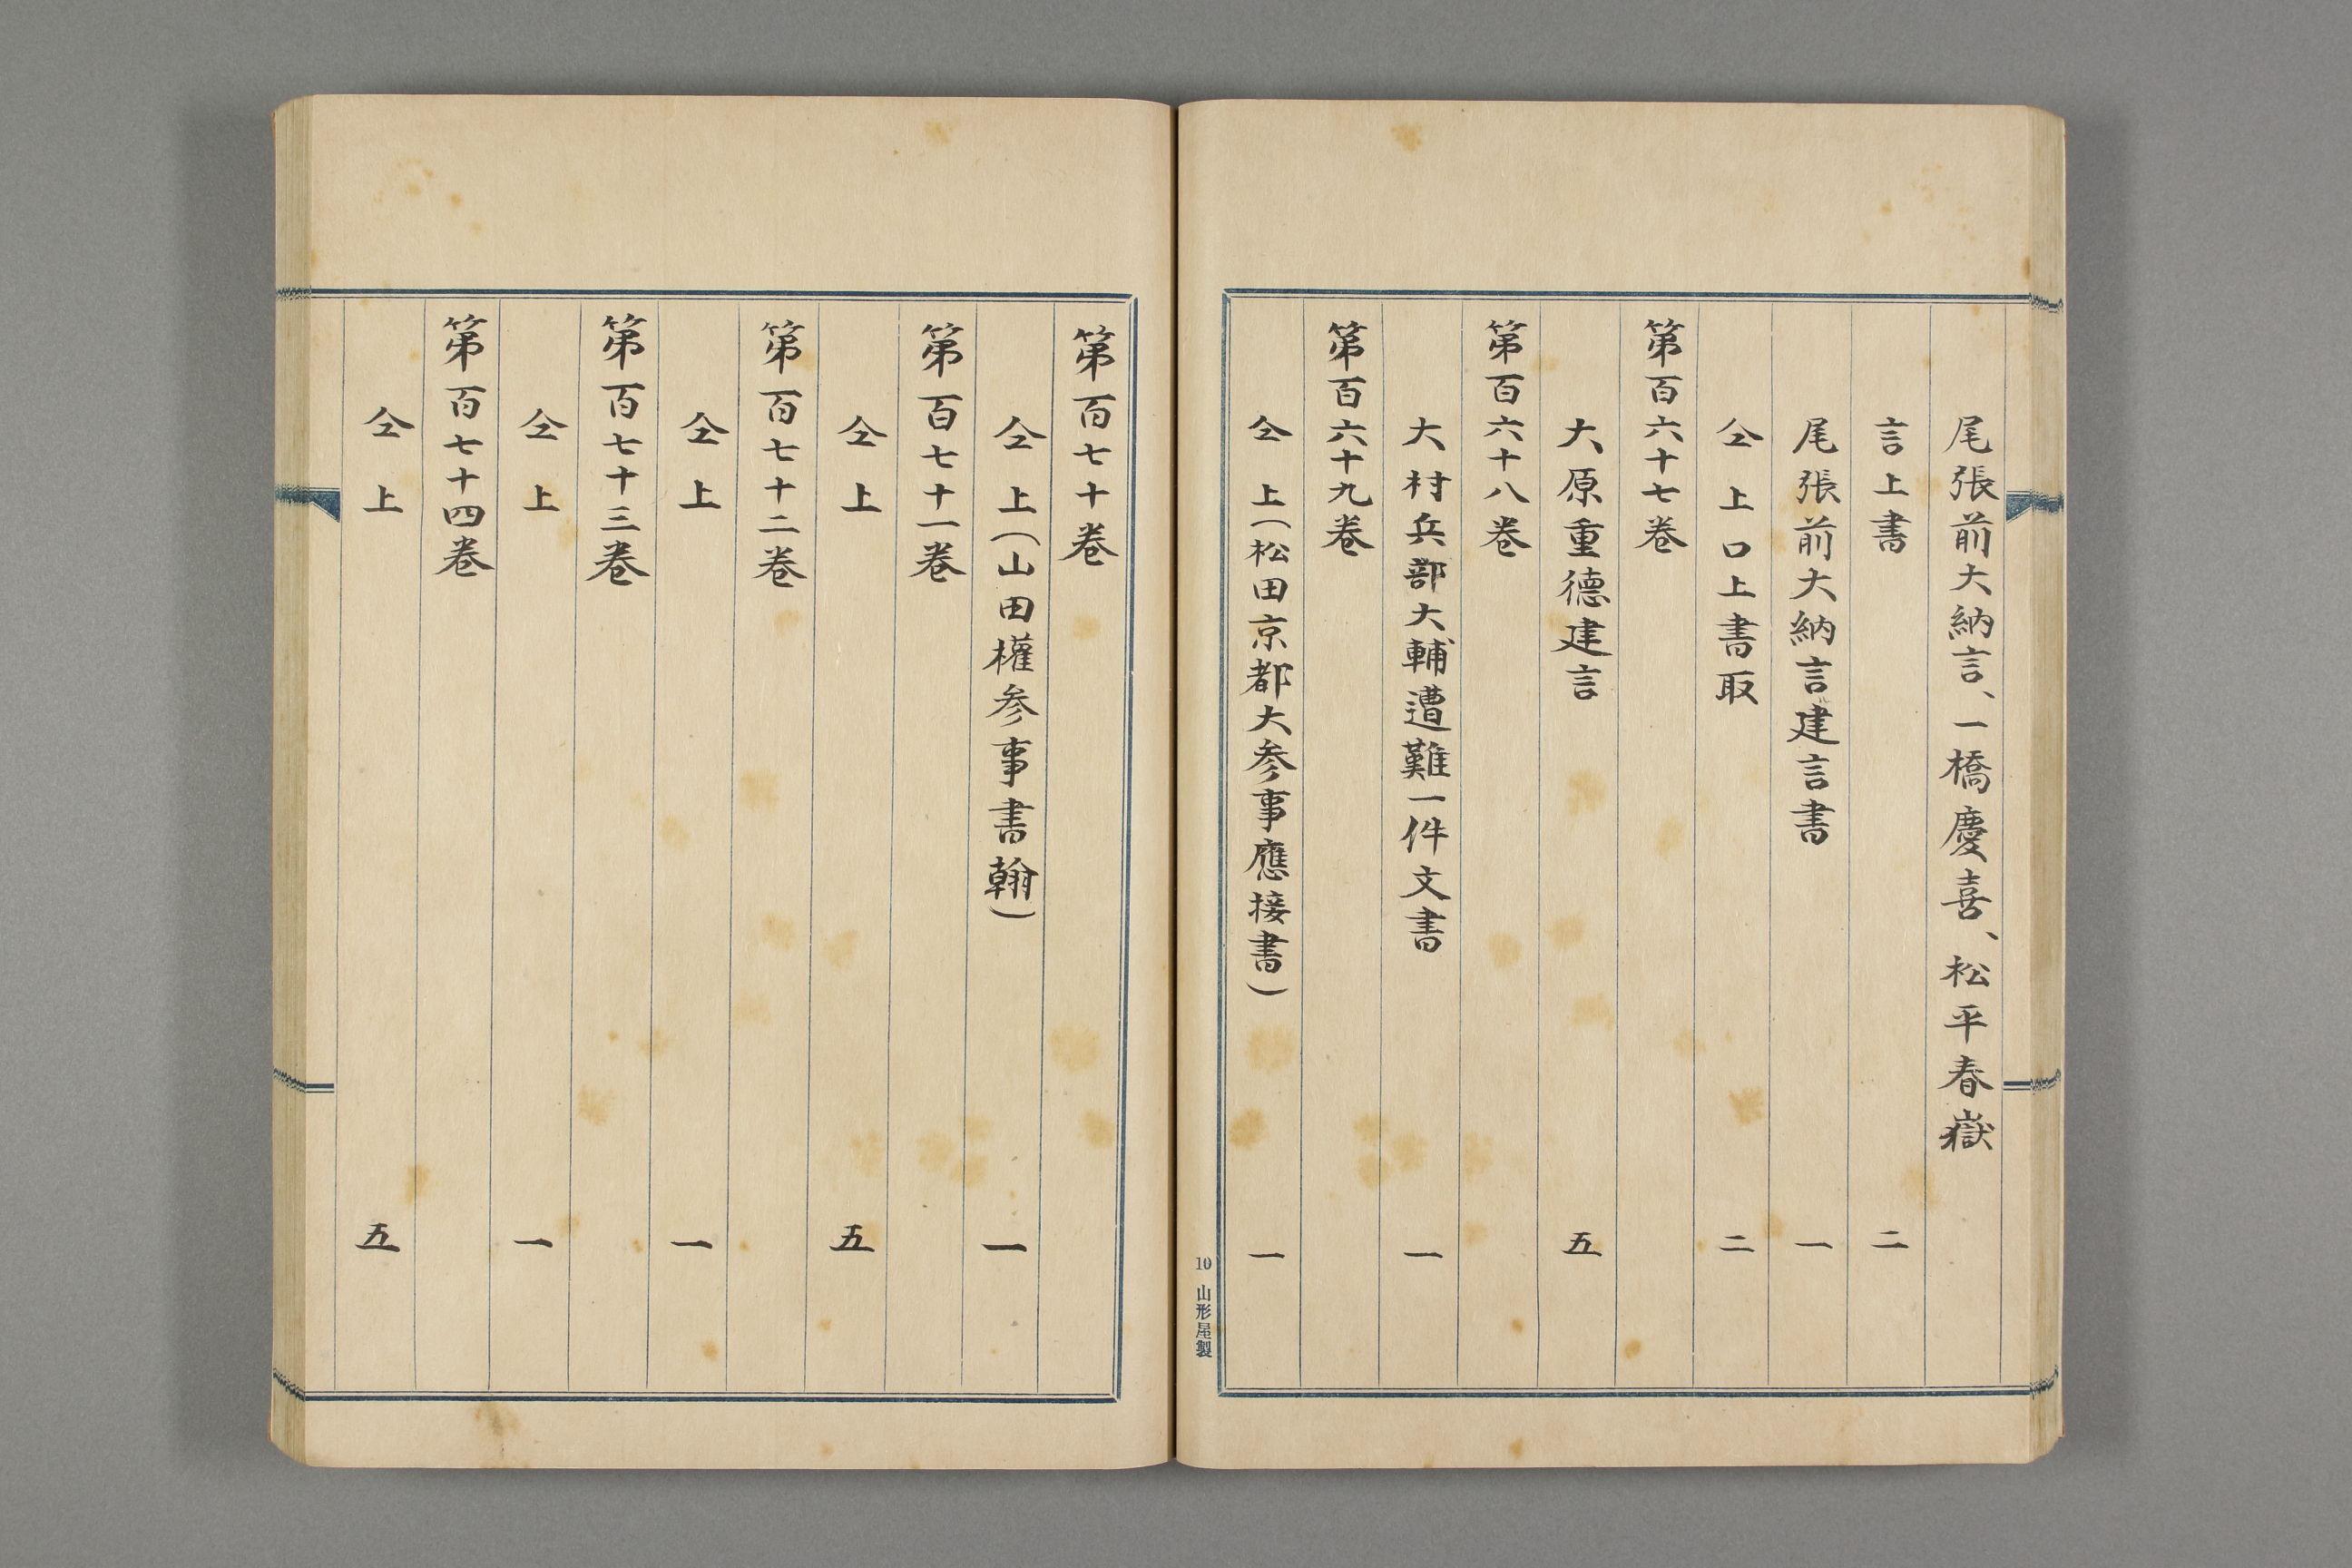 尾張前大納言、一橋慶喜、松平春嶽
言上書 二
尾張前大納言建言書 一
仝上口上書取 二
第百六十七巻
大原重徳建言 五
第百六十八巻
大村兵部大輔遭難一件文書 一
第百六十九巻
仝上(松田京都大参事應接書) 一
10 山形屋製
第百七十巻
仝上(山田權参事書翰) 一
第百七十一巻
仝上 五
第百七十二巻
仝上 一
第百七十三巻
仝上 一
第百七十四巻
仝上 五